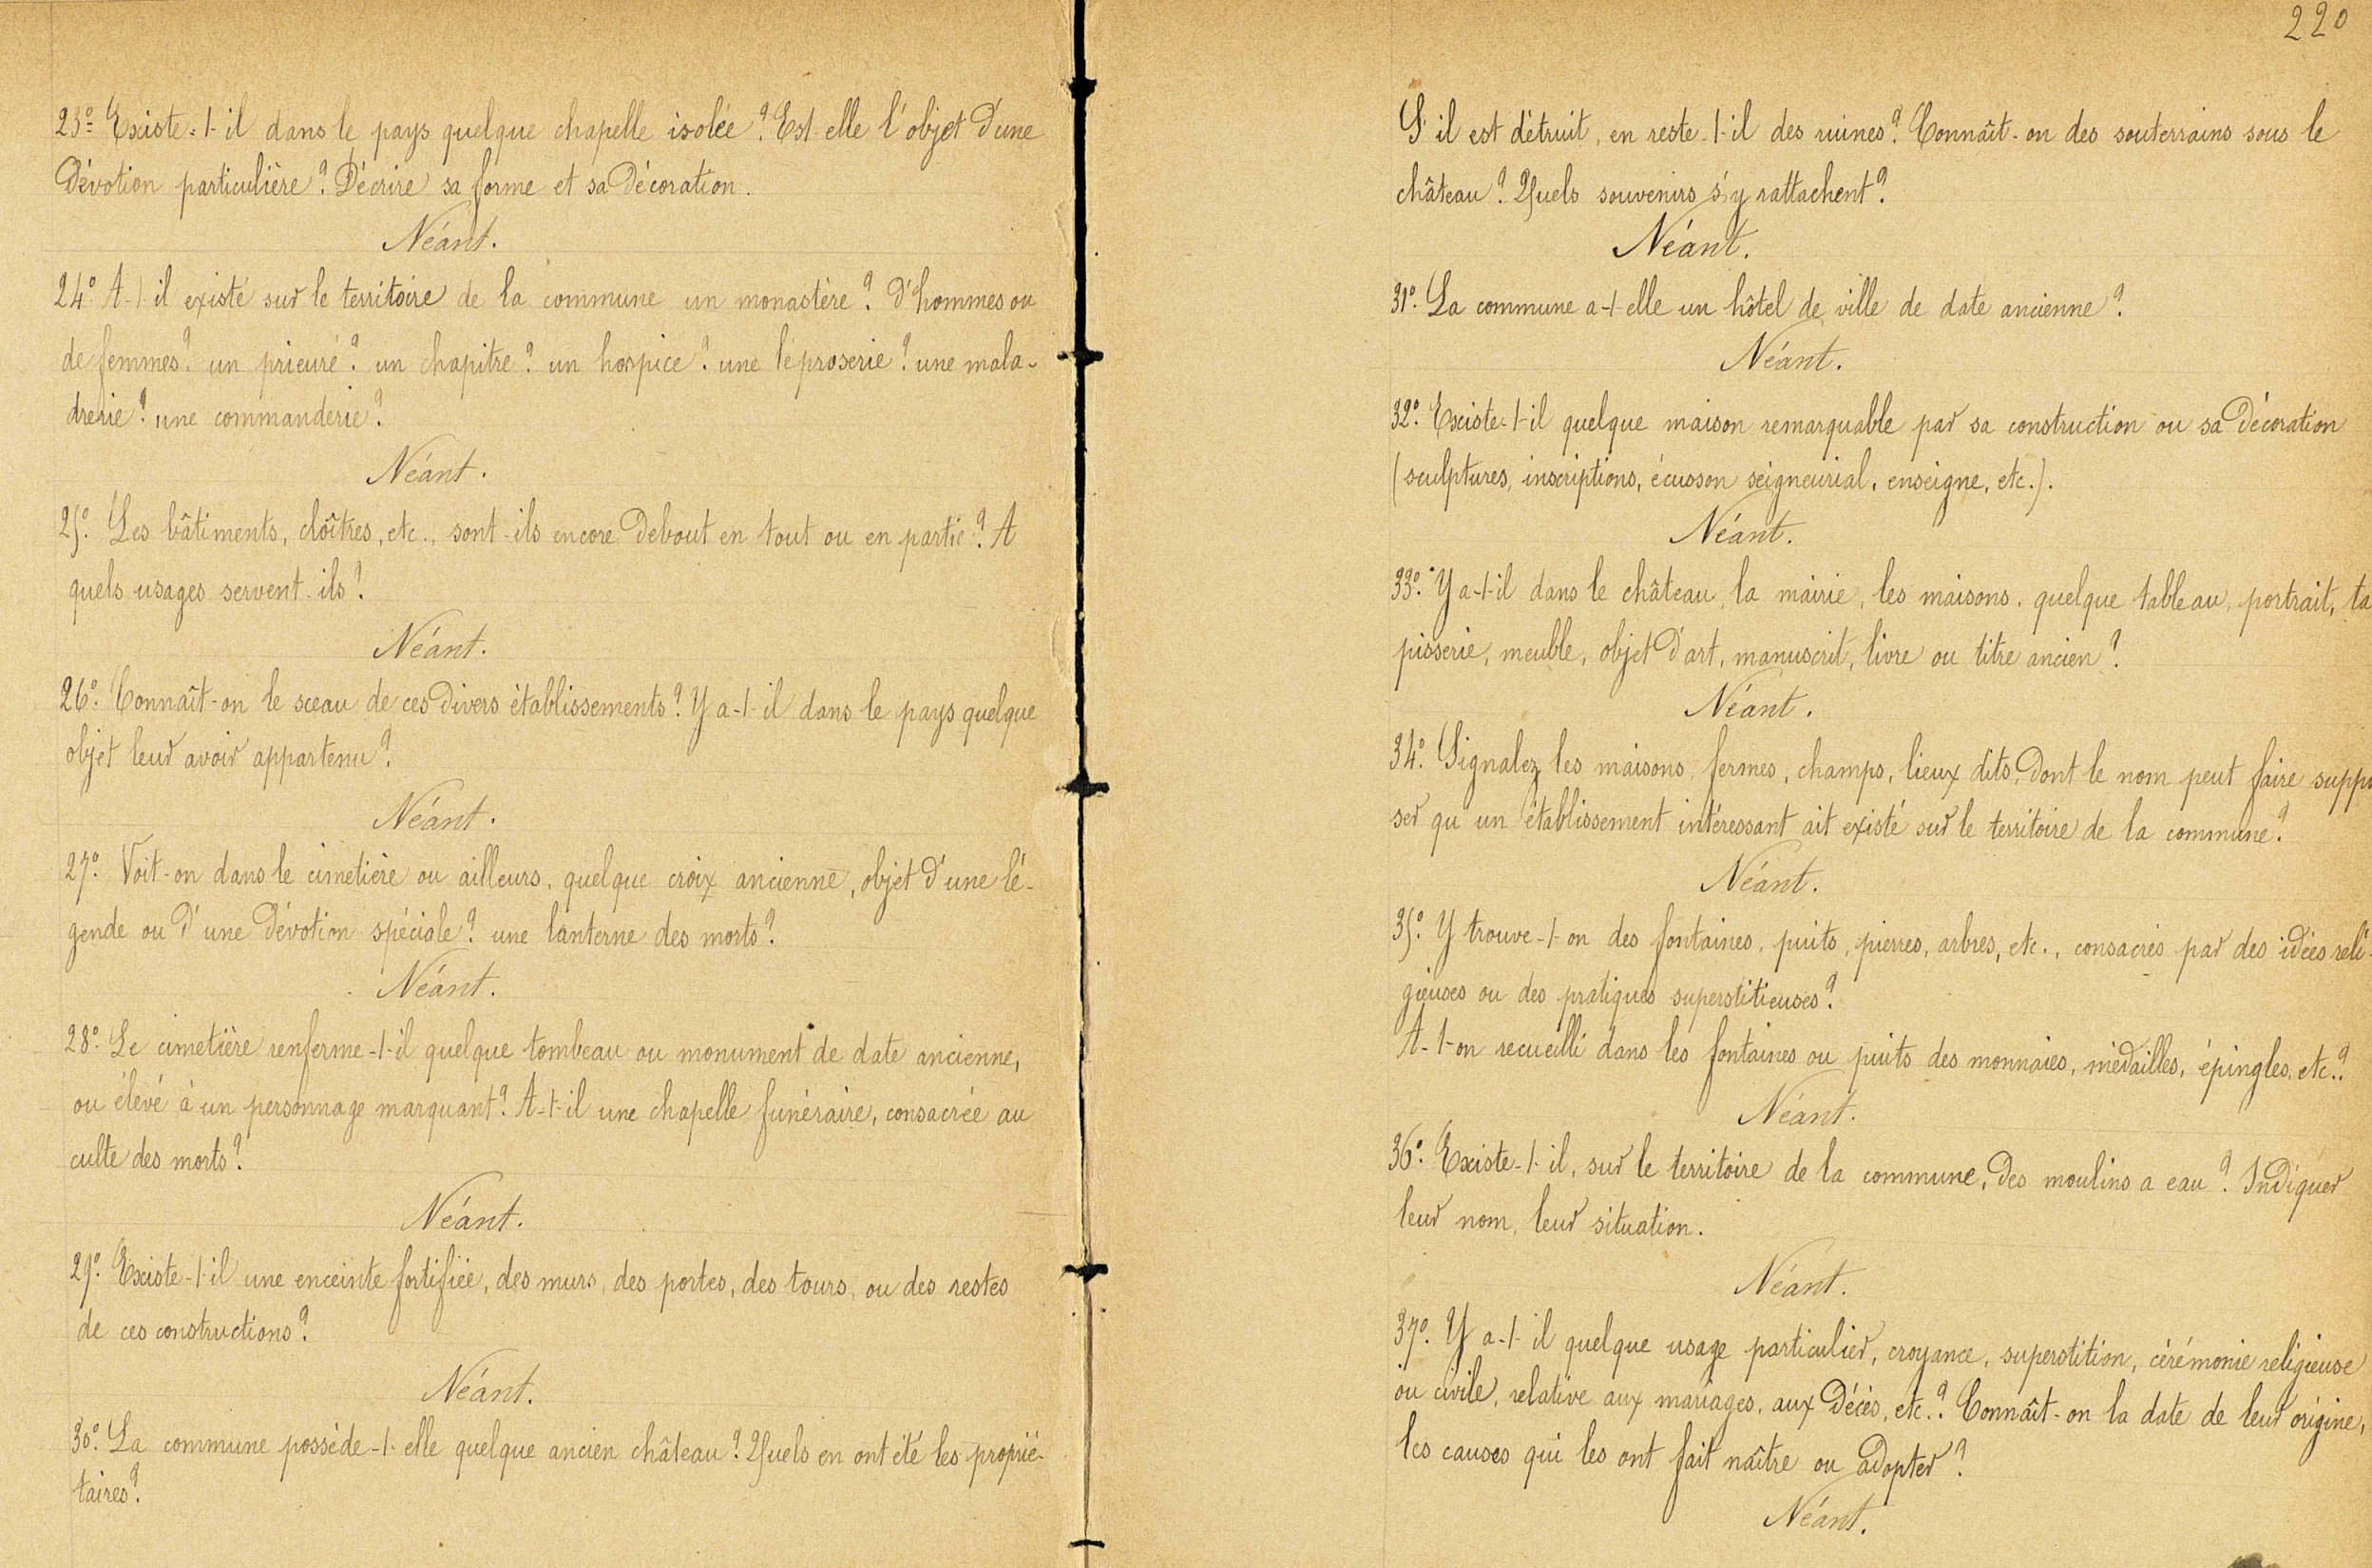 23º Existe-t-il dans le pays quelque chapelle isolée ? Est-elle l'objet d'une
dévotion particulière ? Décrire sa forme et sa décoration.
Néant.
24º. A-t-il existé sur le territoire de la commune un monastère ? d'hommes ou
de femmes ? un prieuré ? un chapitre ? un hospice ? une léproserie ? une mala-
drerie ? une commanderie ?
Néant.
25º. Les bâtiments, cloîtres, etc., sont-ils encore debout en tout ou en partie ? A
quels usages servent-ils ?
Néant.
26º. Connaît-on le sceau de ces divers établissements ? Y a-t-il dans le pays quelque
objet leur avoir appartenu ?
Néant.
27º. Voit-on dans le cimetière ou ailleurs, quelque croix ancienne, objet d'une lé-
gende ou d'une dévotion spéciale ? une lanterne des morts ?
Néant.
28º. Le cimetière renferme-t-il quelque tombeau ou monument de date ancienne,
ou élevé à un personnage marquant ? A-t-il une chapelle funéraire, consacrée au
culte des morts ?
Néant.
29º. Existe-t-il une enceinte fortifiée, des murs, des portes, des tours, ou des restes
de ces constructions ?
Néant.
30º. La commune possède-t-elle quelque ancien château ? Quels en ont été les proprié-
taires ?
220
S'il est détruit, en reste-t-il des ruines ? Connaît-on des souterrains sous le
château ? Quels souvenirs s'y rattachent ?
Néant.
31º. La commune a-t-elle un hôtel de ville de date ancienne ?
Néant.
32º. Existe-t-il quelque maison remarquable par sa construction ou sa décoration
(sculptures, inscriptions, écusson seigneurial, enseigne, etc.).
Néant.
33º. Y a-t-il dans le château, la mairie, les maisons, quelque tableau, portrait, ta
pisserie, meuble, objet d'art, manuscrit, livre ou titre ancien ?
Néant.
34º. Signalez les maisons, fermes, champs, lieux dits, dont le nom peut faire suppo
ser qu'un établissement intéressant ait existé sur le territoire de la commune ?
Néant.
35º. Y trouve-t-on des fontaines, puits, pierres, arbres, etc., consacrés par des idées reli-
gieuses ou des pratiques superstitieuses ?
A-t-on recueilli dans les fontaines ou puits des monnaies, médailles, épingles, etc. ?
Néant.
36º. Existe-t-il, sur le territoire de la commune, des moulins a eau ? Indiquer
leur nom, leur situation.
Néant.
37º. Y a-t-il quelque usage particulier, croyance, superstition, cérémonie religieuse
ou civile, relative aux mariages, aux décès, etc. ? Connaît-on la date de leur origine,
les causes qui les ont fait naître ou adopter ?
Néant.